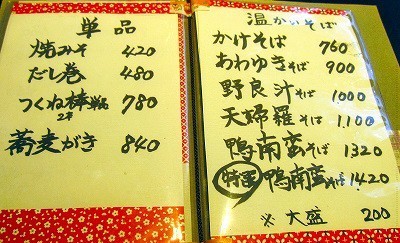 単品
焼みそ 420
だし巻 480
つくね棒 780
2本
蕎麦がき 840
温かいそば
かけそば 760
あわゆきそば 900
野良汁そば 1000
天婦羅そば 1,100
鴨南蛮そば 1320
特選 鴨南蛮そば 1420
※ 大盛 200